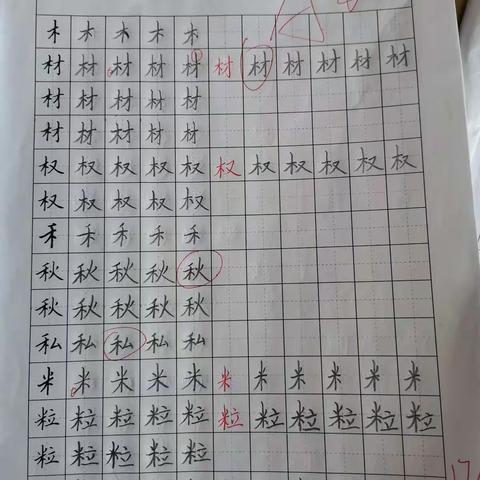 木 木 木 木 木
材 材 材 材 材 材 材 材 材 材 材
材 材 材 材 材
材 材 材 材 材
权 权 权 权 权 权 权 权 权 权 权
权 权 权 权 权
禾 禾 禾 禾 禾
秋 秋 秋 秋 秋
秋 秋 秋 秋 秋
私 私 私 私 私
米 米 米 米 米 米 米 米 米 米 米
粒 粒 粒 粒 粒 粒 粒 粒 粒 粒 粒
粒 粒 粒 粒 粒